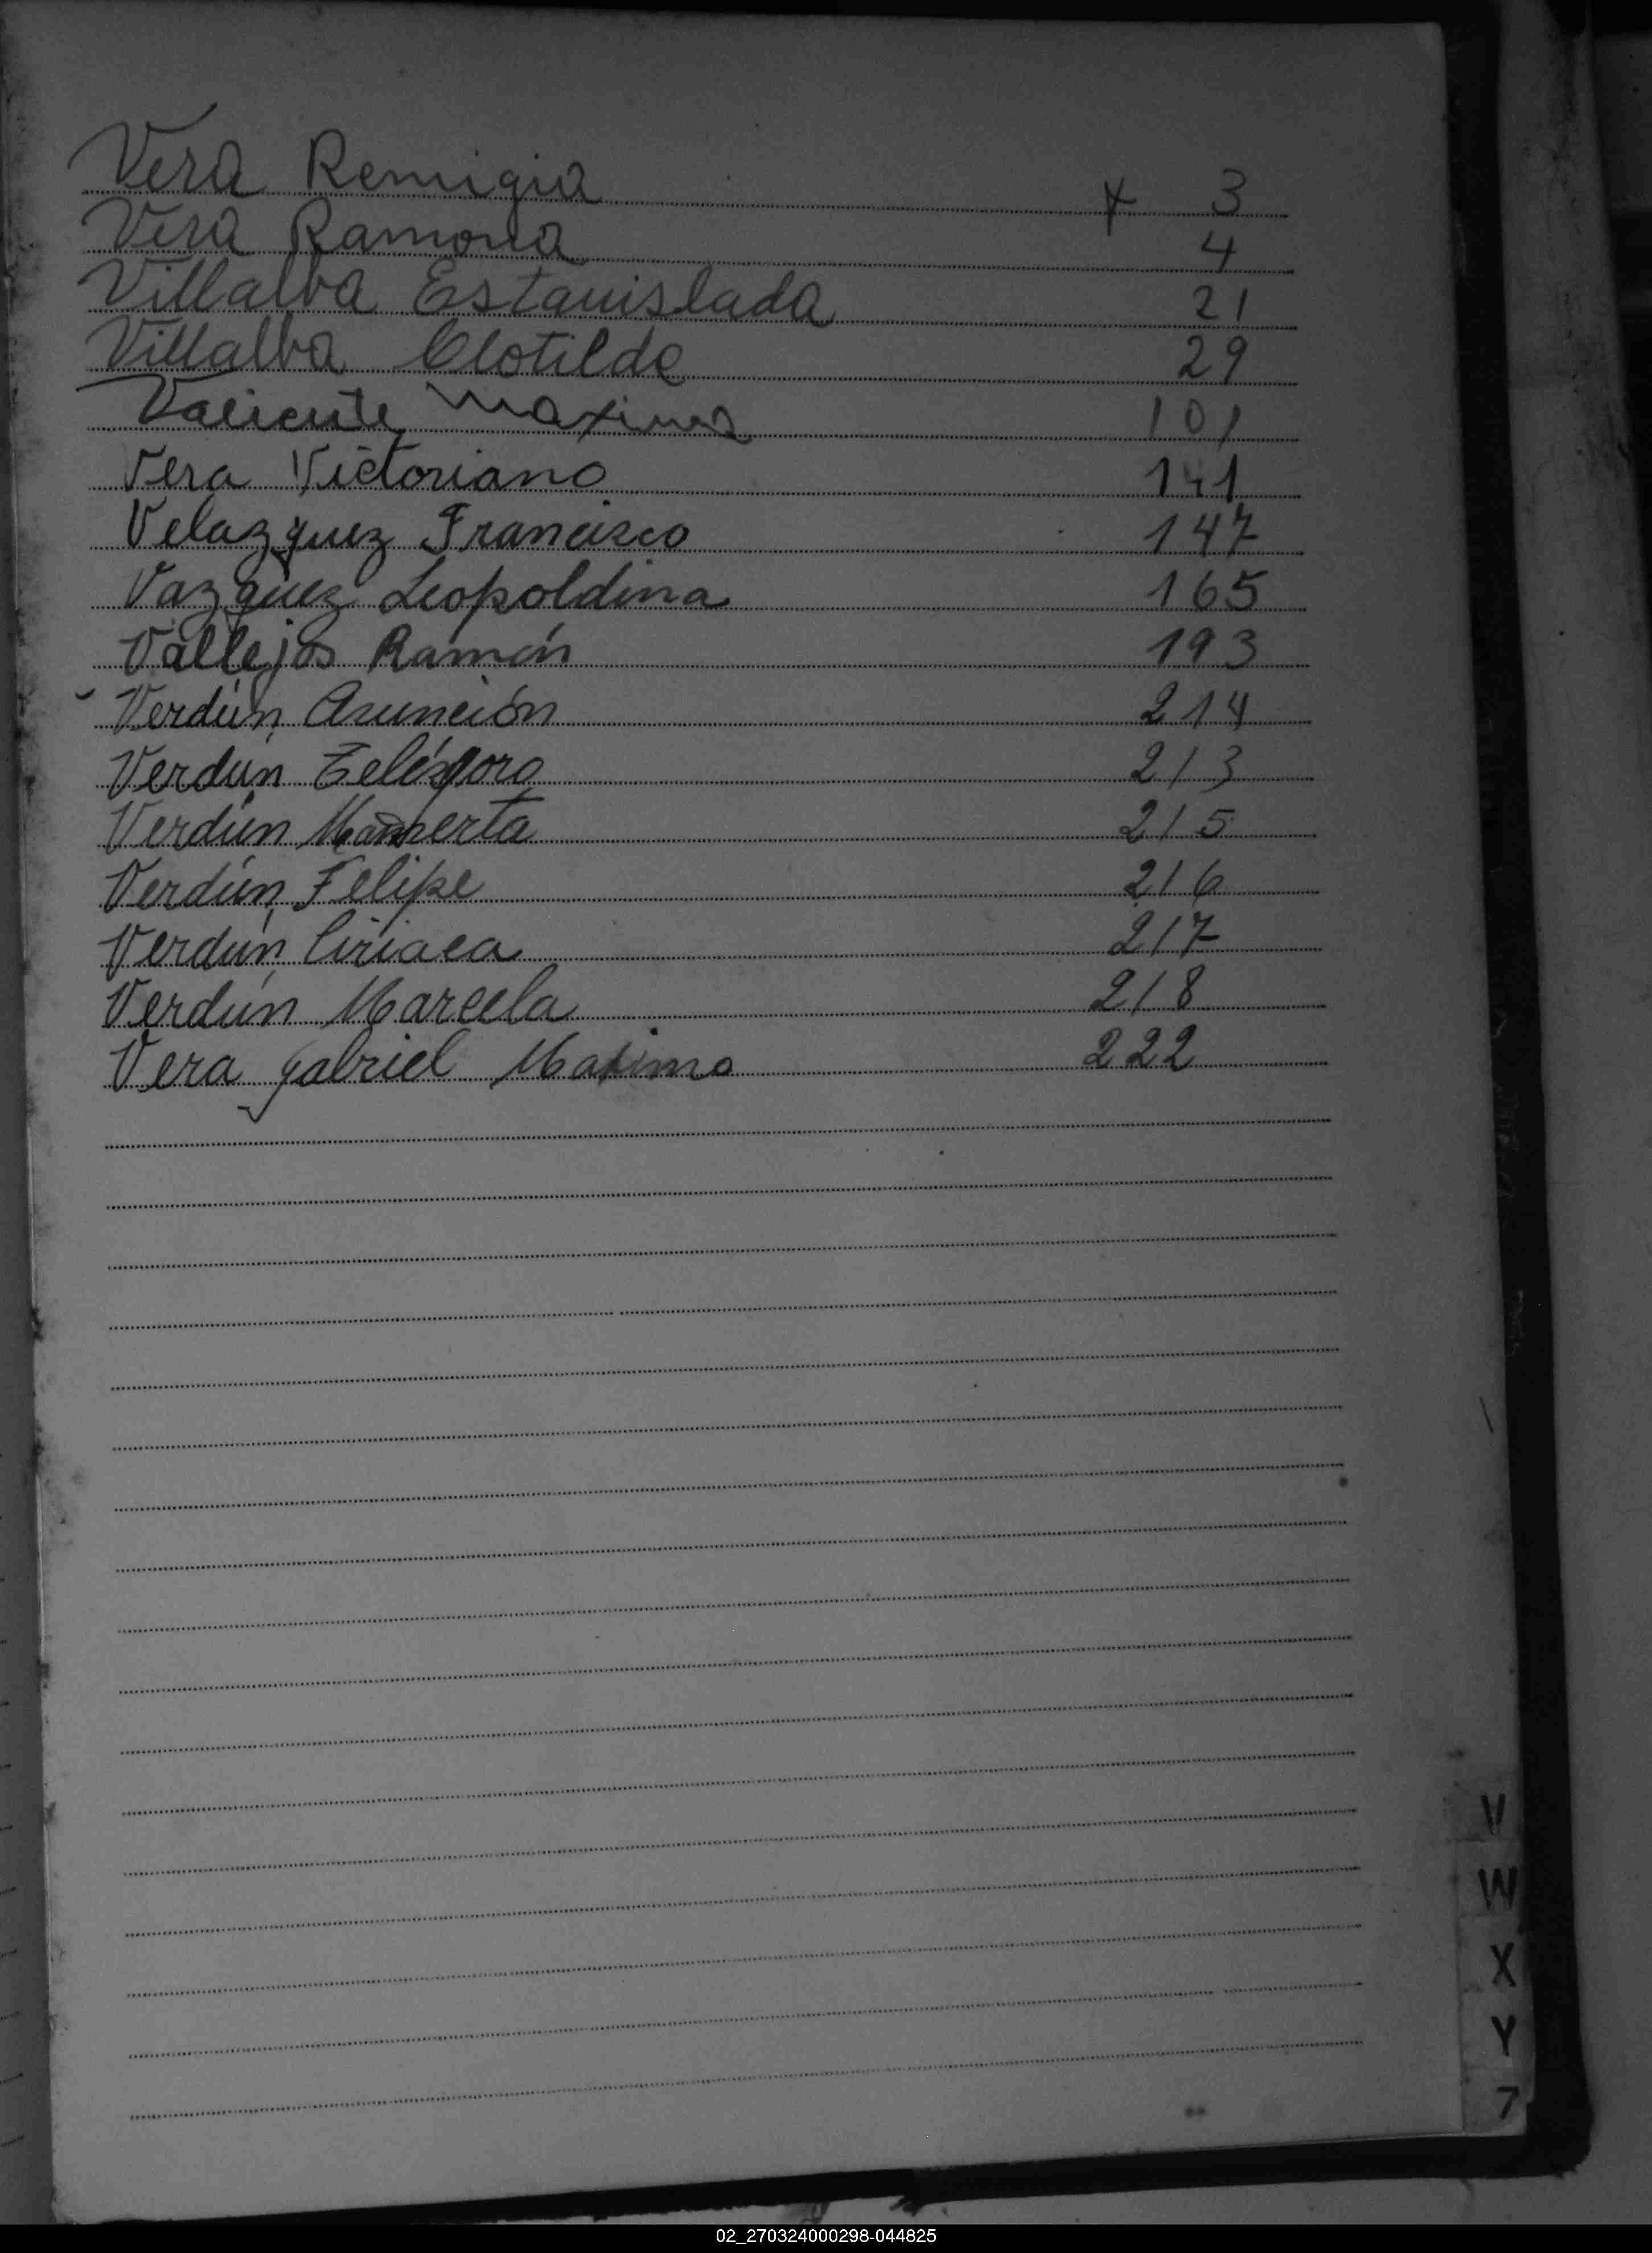 Vera Remigia x 3
Vera Ramona 4
Villalba Estanislada 21
Villalba Clotilde 29
Valiente Maxima 101
Vera Victoriano 141
Velazquez Francisco 147
Vazquez Leopoldina 165
Vallejos Ramón 193
Verdún Asunción 214
Verdún Telésforo 213
Verdún Mamerta 215
Verdún Felipe 216
Verdún Ciriaca 217
Verdún Marcela 218
Vera Gabriel Maximo 222
V
W
X
Y
Z
02_270324000298-044825